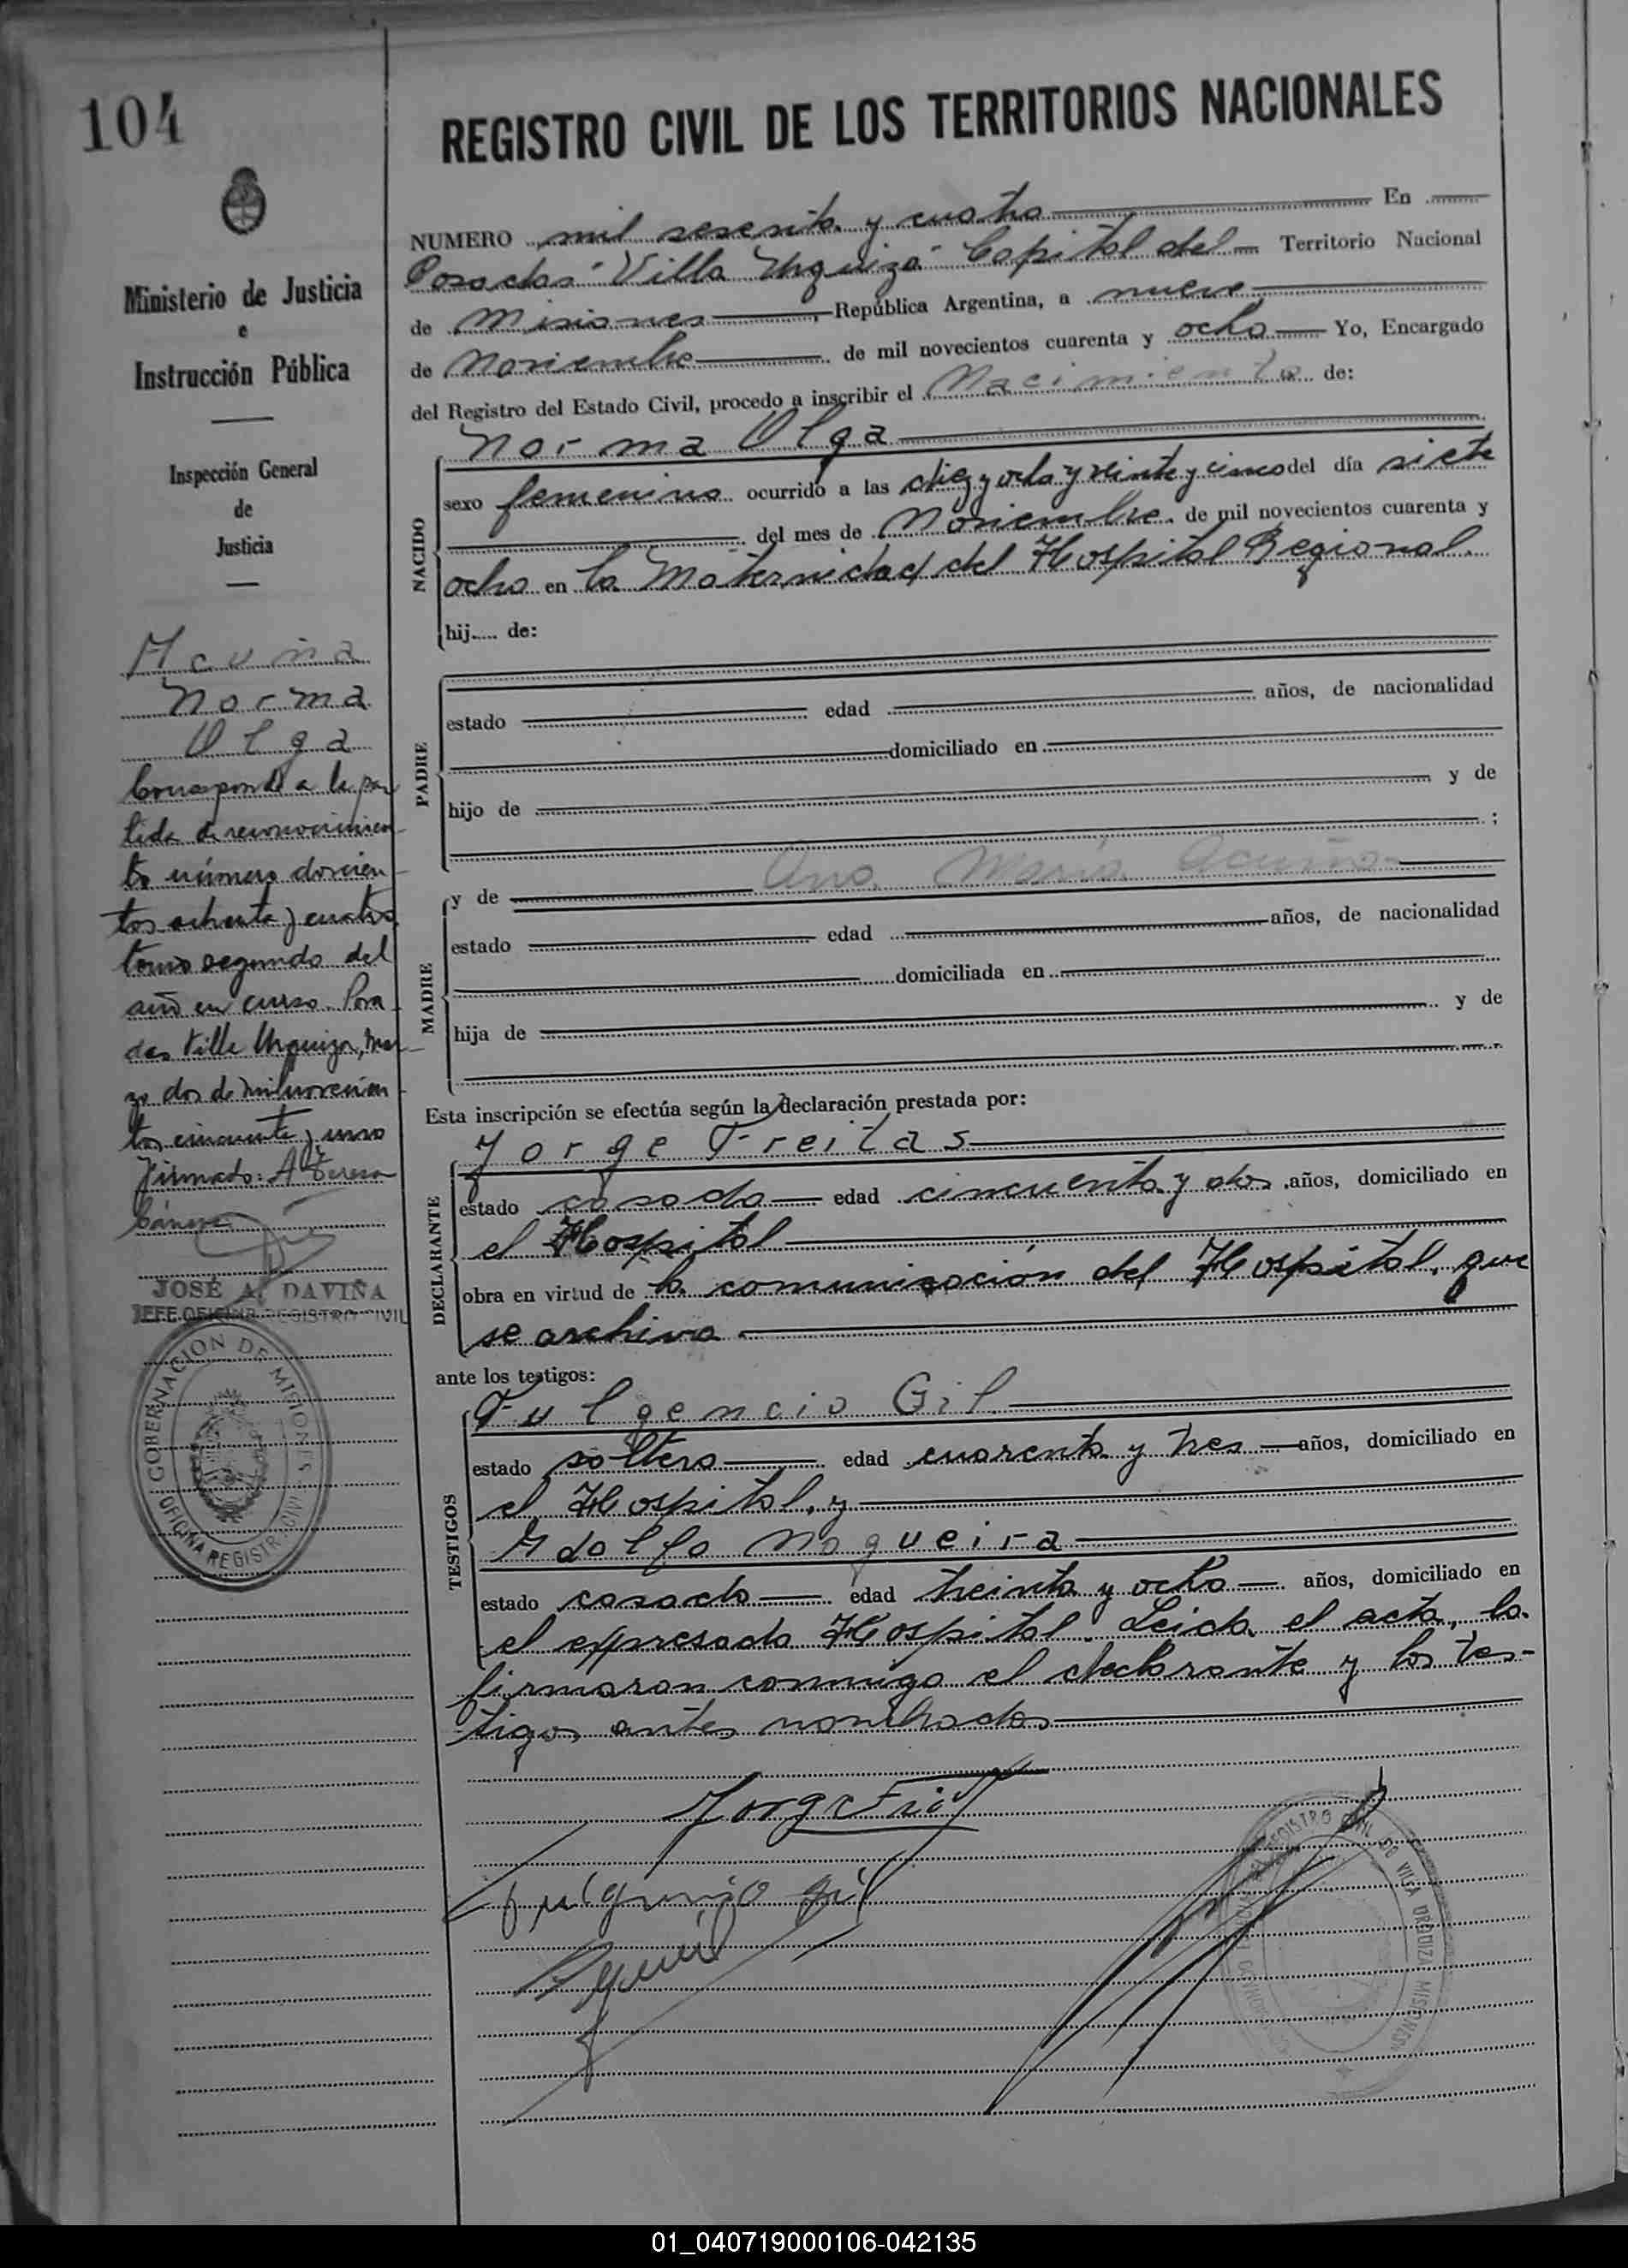 104
REGISTRO CIVIL DE LOS TERRITORIOS NACIONALES
Ministerio de Justicia
e
Instrucción Pública
Inspección General
de
Justicia
Acuña
Norma
Olga
Corresponde a la par
tida de reconocimien
to número doscien
tos ochenta y cuatro
tomo segundo del
año en curso. Posa
das Villa Urquiza, mar
zo dos de mil novecien
tos cincuenta y uno
Firmado: A Teresa
JOSÉ A. DAVIÑA
JEFE OFICINA REGISTRO CIVIL
GOBERNACION DE MISIONES
OFICINA REGISTRO CIVIL
NUMERO mil sesenta y cuatro En
Posadas "Villa Urquiza" Capital del Territorio Nacional
de Misiones, República Argentina, a nueve
de Noviembre de mil novecientos cuarenta y ocho Yo, Encargado
del Registro del Estado Civil, procedo a inscribir el Nacimiento de:
NACIDO
Norma Olga
sexo femenino ocurrido a las diez y ocho y veinte y cinco del día siete
del mes de Noviembre de mil novecientos cuarenta y
ocho en la Maternidad del Hospital Regional.
hij..... de:
PADRE
estado edad años, de nacionalidad
domiciliado en
hijo de y de
;
MADRE
y de Ana María Acuña
estado edad años, de nacionalidad
domiciliada en
hija de y de
Esta inscripción se efectúa según la declaración prestada por:
DECLARANTE
Jorge Freitas
estado casado edad cincuenta y dos años, domiciliado en
el Hospital
obra en virtud de la comunicación del Hospital, que
se archiva
ante los testigos:
TESTIGOS
Fulgencio Gil
estado soltero edad cuarenta y tres años, domiciliado en
el Hospital, y
Adolfo Nogueira
estado casado edad treinta y ocho años, domiciliado en
el expresado Hospital. Leida el acta, la
firmaron conmigo el declarante y los tes-
tigos antes nombrados
Fulgencio Gil
REGISTRO CIVIL DE VILLA URQUIZA MISIONES
01_040719000106-042135